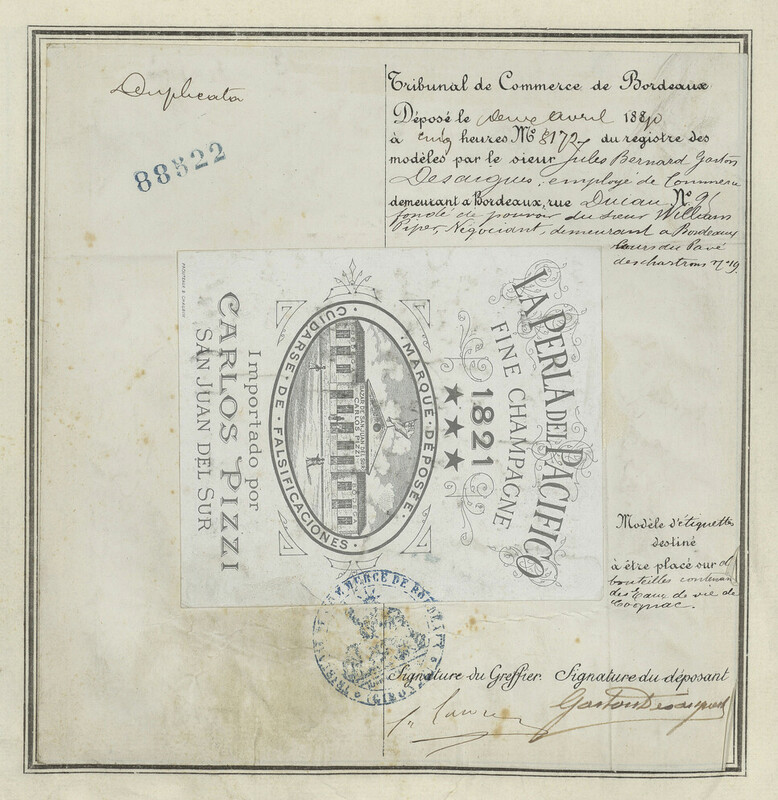 Duplicata
88522
Tribunal de Commerce de Bordeaux
Déposé le deux avril 1890
à cinq heures Nº 8172 du registre des
modèles par le sieur Jules Bernard Gaston
Desaigues, employé de Commerce
demeurant à Bordeaux, rue Ducau Nº 95
fondé de pouvoir du sieur William
Piper, Négociant, demeurant à Bordeaux
Cours du Pavé
des chartrons nº 19
LA PERLA DEL PACIFICO
FINE CHAMPAGNE
1821
MARQUE DÉPOSÉE.
CUIDARSE DE FALSIFICACIONES
CARLOS PIZZI
BODEGA
Importado por
CARLOS PIZZI
SAN JUAN DEL SUR
Modèle d'étiquettes
destiné
à être placé sur d
bouteilles contenan
des Eaux de vie de
Cognac.
TRIBUNAL DE COMMERCE DE BORDEAUX
(GIRONDE)
Signature du Greffier. Signature du déposant
Gaston Desaigues